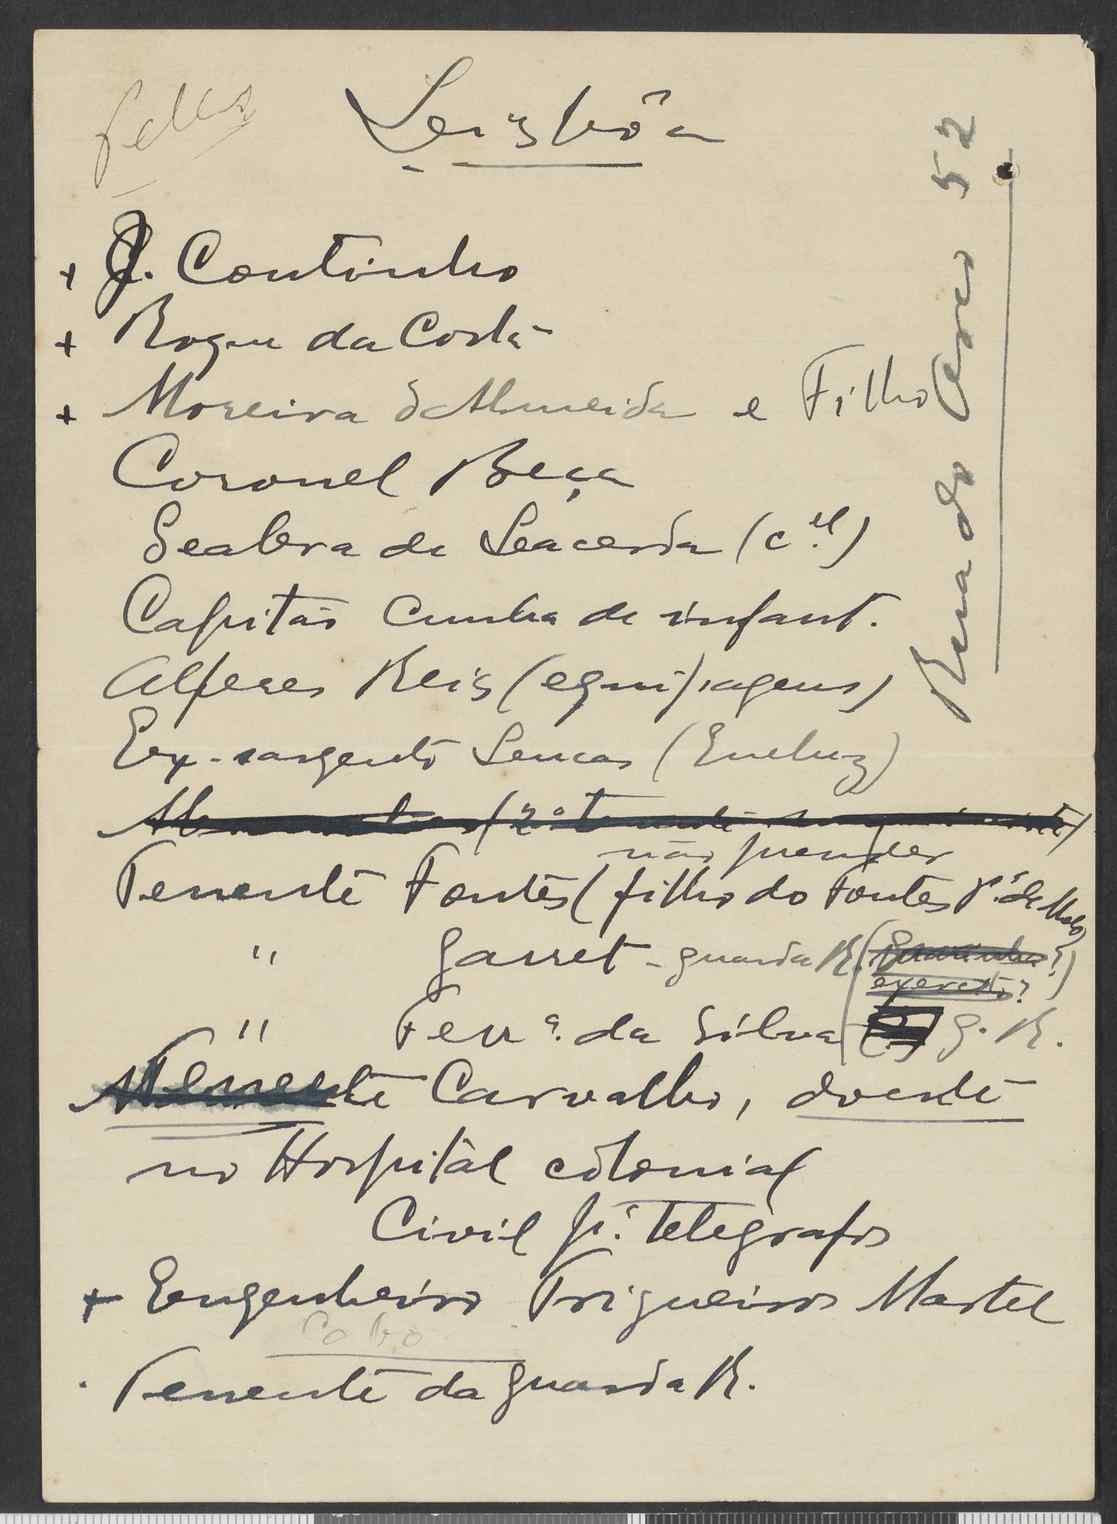 Lisbôa
+ J. Coutinho
+ Roque da Costa
+ Moreira d'Almeida e Filho
Coronel Beça
Seabra de Lacerda (c.el)
Capitão Cunha de infant.
Alferes Reis (equipagens)
Ex-sargento Lucas
não prender
Tenente Fontes (filho do Fontes
" Garret - guarda R. exercito?)
" Ferr.a da Silva G. R.
Tenente Carvalho, doente
no Hospital colonial
Civil p.a Telegrafos
+ Engenheiro Trigueiros Martel
Cabo
Tenente da guarda R.
Rua do Arco 52